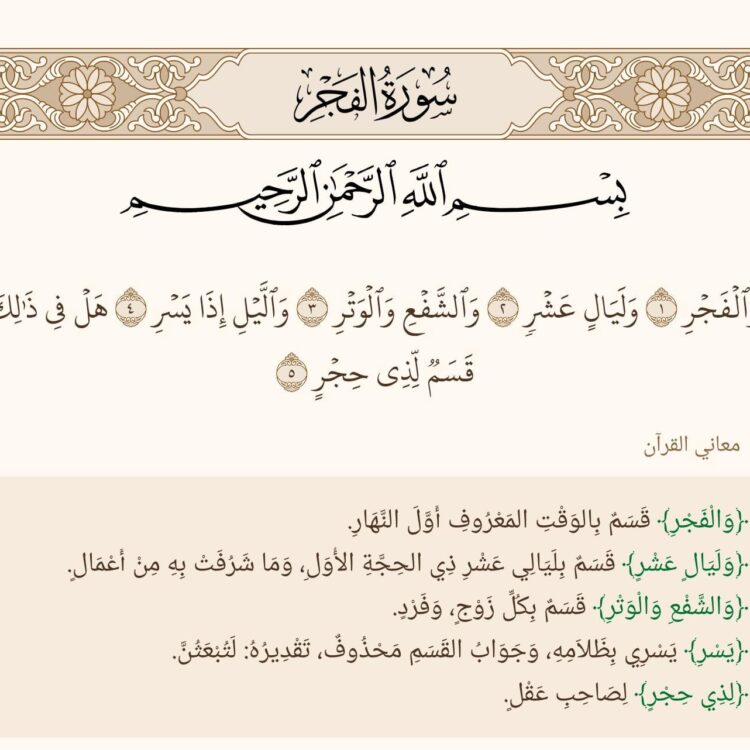 سُورَةُ الفَجْرِ
بِسْمِ ٱللَّهِ ٱلرَّحْمَٰنِ ٱلرَّحِيمِ
وَٱلْفَجْرِ ١ وَلَيَالٍ عَشْرٍ ٢ وَٱلشَّفْعِ وَٱلْوَتْرِ ٣ وَٱلَّيْلِ إِذَا يَسْرِ ٤ هَلْ فِى ذَٰلِكَ
قَسَمٌ لِّذِى حِجْرٍ ٥
معاني القرآن
﴿وَالْفَجْرِ﴾ قَسَمٌ بِالوَقْتِ المَعْرُوفِ أَوَّلَ النَّهَارِ.
﴿وَلَيَالٍ عَشْرٍ﴾ قَسَمٌ بِلَيَالِي عَشْرِ ذِي الحِجَّةِ الأُوَلِ، وَمَا شَرُفَتْ بِهِ مِنْ أَعْمَالٍ.
﴿وَالشَّفْعِ وَالْوَتْرِ﴾ قَسَمٌ بِكُلِّ زَوْجٍ، وَفَرْدٍ.
﴿يَسْرِ﴾ يَسْرِي بِظَلاَمِهِ، وَجَوَابُ القَسَمِ مَحْذُوفٌ، تَقْدِيرُهُ: لَتُبْعَثُنَّ.
﴿لِذِي حِجْرٍ﴾ لِصَاحِبِ عَقْلٍ.